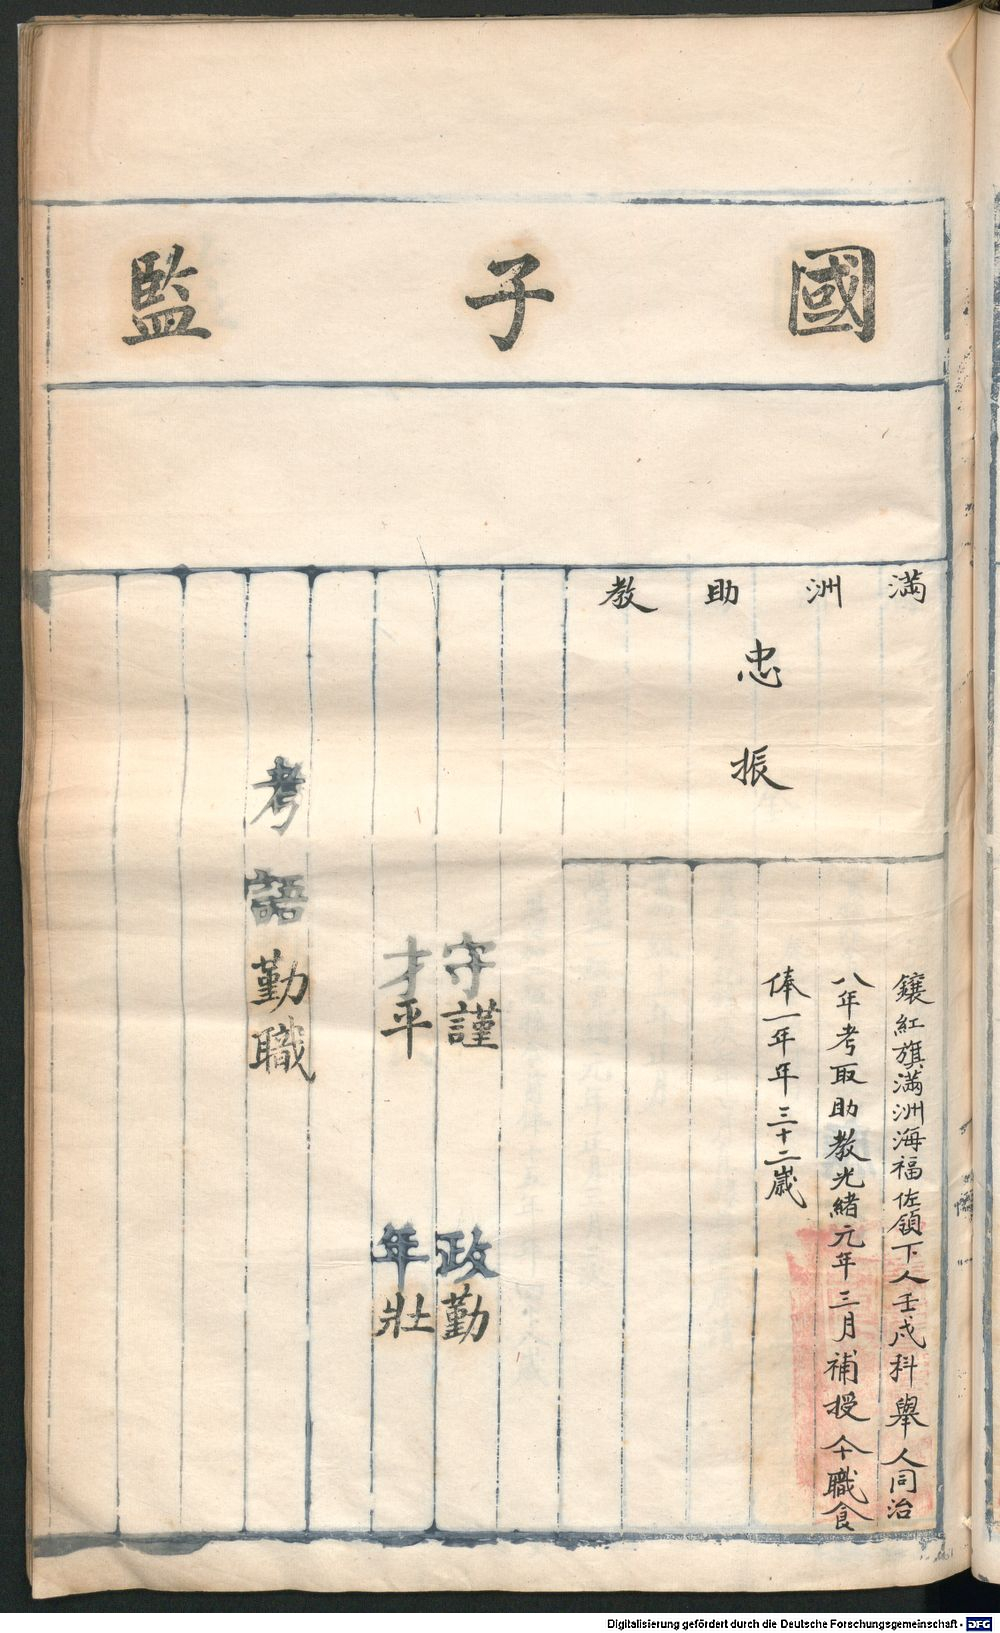 國子監
滿洲助教
忠振
鑲紅旗滿洲海福佐領下人壬戌科舉人同治
八年考取助教光緒元年三月補授今職食
俸一年年三十二歲
守謹 政勤
才平 年壯
考語勤職
Digitalisierung gefördert durch die Deutsche Forschungsgemeinschaft - DFG